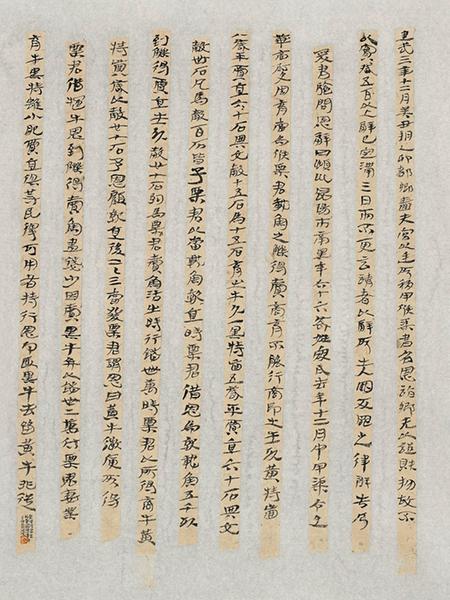 建武三年十二月癸丑朔乙卯都鄉嗇夫宮以廷所移甲渠候書召恩詣鄉先以證財物故不
以實臧五百以上辭已定滿三日而不更言請者以辭所出入罪反罪之律辨告乃
爰書驗問恩辭曰潁川昆陽市南里年六十六歲姓寇氏去年十二月中甲渠令史
華商尉史周育當為候粟君載魚之觻得賣商育不能行商即出牛一頭黃特齒
八歲平賈直六十石與交穀十五石為七十五石育出牛一頭黑特齒五歲平賈直六十石與交
穀卌石凡為穀百石皆予粟君以當載魚就直時粟君借恩為就載魚五千頭
到觻得賈直牛一頭穀廿七石約為粟君賣魚沽出時行錢卌萬時粟君以所得商牛黃
特齒八歲以穀廿七石予恩顧就直後二三日當發粟君謂恩曰黃牛微瘦所得
粟君借牛恩到觻得賣魚盡錢少因賣黑牛并以錢卅二萬付粟君妻業
育牛黑特雖小肥賈直俱等耳擇可用者持行恩即取黑牛去留黃牛非從